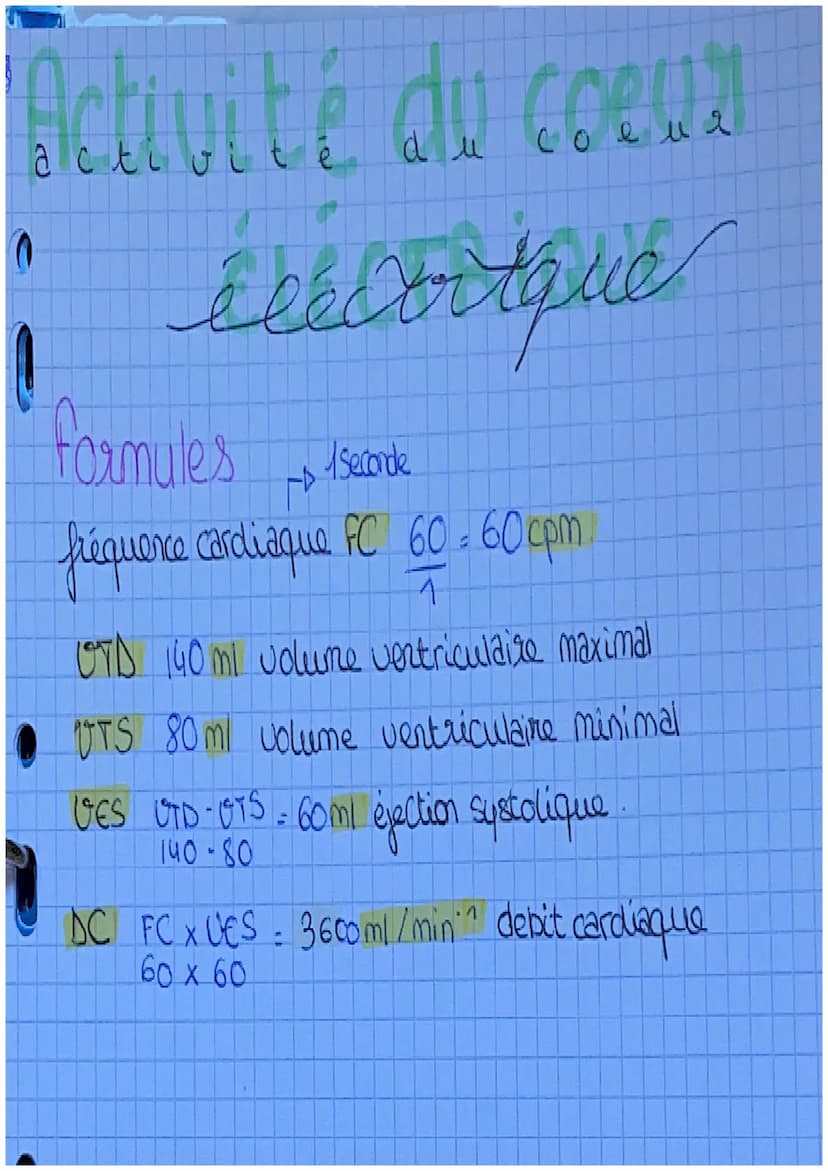 Activité du coeur
activité du coeur
ÉLÉCTRIQUE
éléctrique
formules
→ 1 seconde
fréquence cardiaque FC 60 = 60 cpm.
1
VTD 140 ml volume ventriculaire maximal
VTS 80 ml volume ventriculaire minimal
VES VTD - VTS = 60 ml éjection systolique.
140 - 80
DC FC x VES = 3600 ml / min⁻¹ debit cardiaque
60 x 60